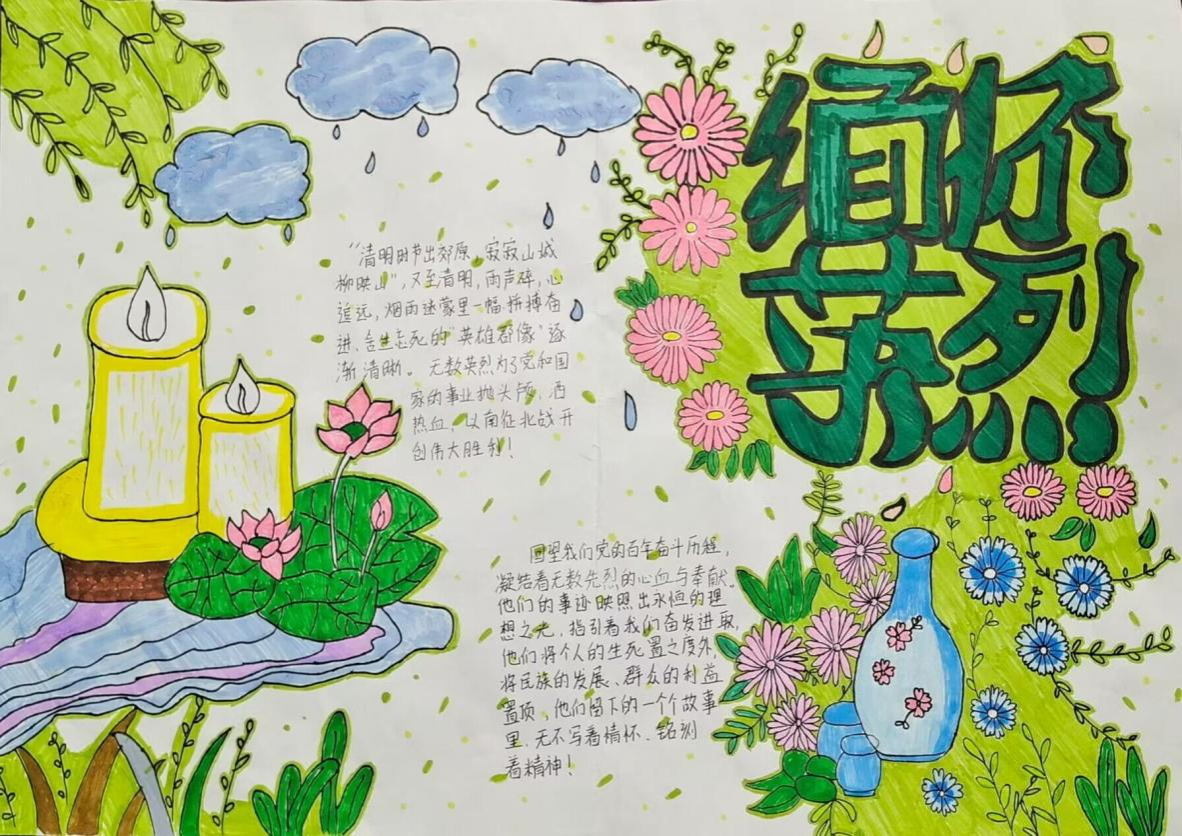 缅怀
英烈
"清明时节出郊原,寂寂山城
柳映山",又至清明,雨声碎,心
追远,烟雨迷蒙里一幅拼搏奋
进、舍生忘死的"英雄群像"逐
渐清晰。无数英烈为了党和国
家的事业抛头颅、洒
热血,以南征北战开
创伟大胜利!
回望我们党的百年奋斗历程,
凝结着无数先烈的心血与奉献。
他们的事迹映照出永恒的理
想之光,指引着我们奋发进取,
他们将个人的生死置之度外,
将民族的发展、群众的利益
置顶,他们留下的一个个故事
里,无不写着情怀、铭刻
着精神!